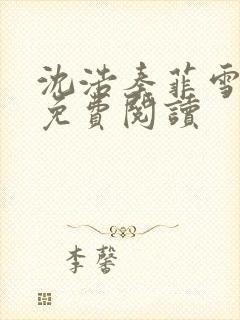 沈浩秦菲雪
免費閱讀
李馨